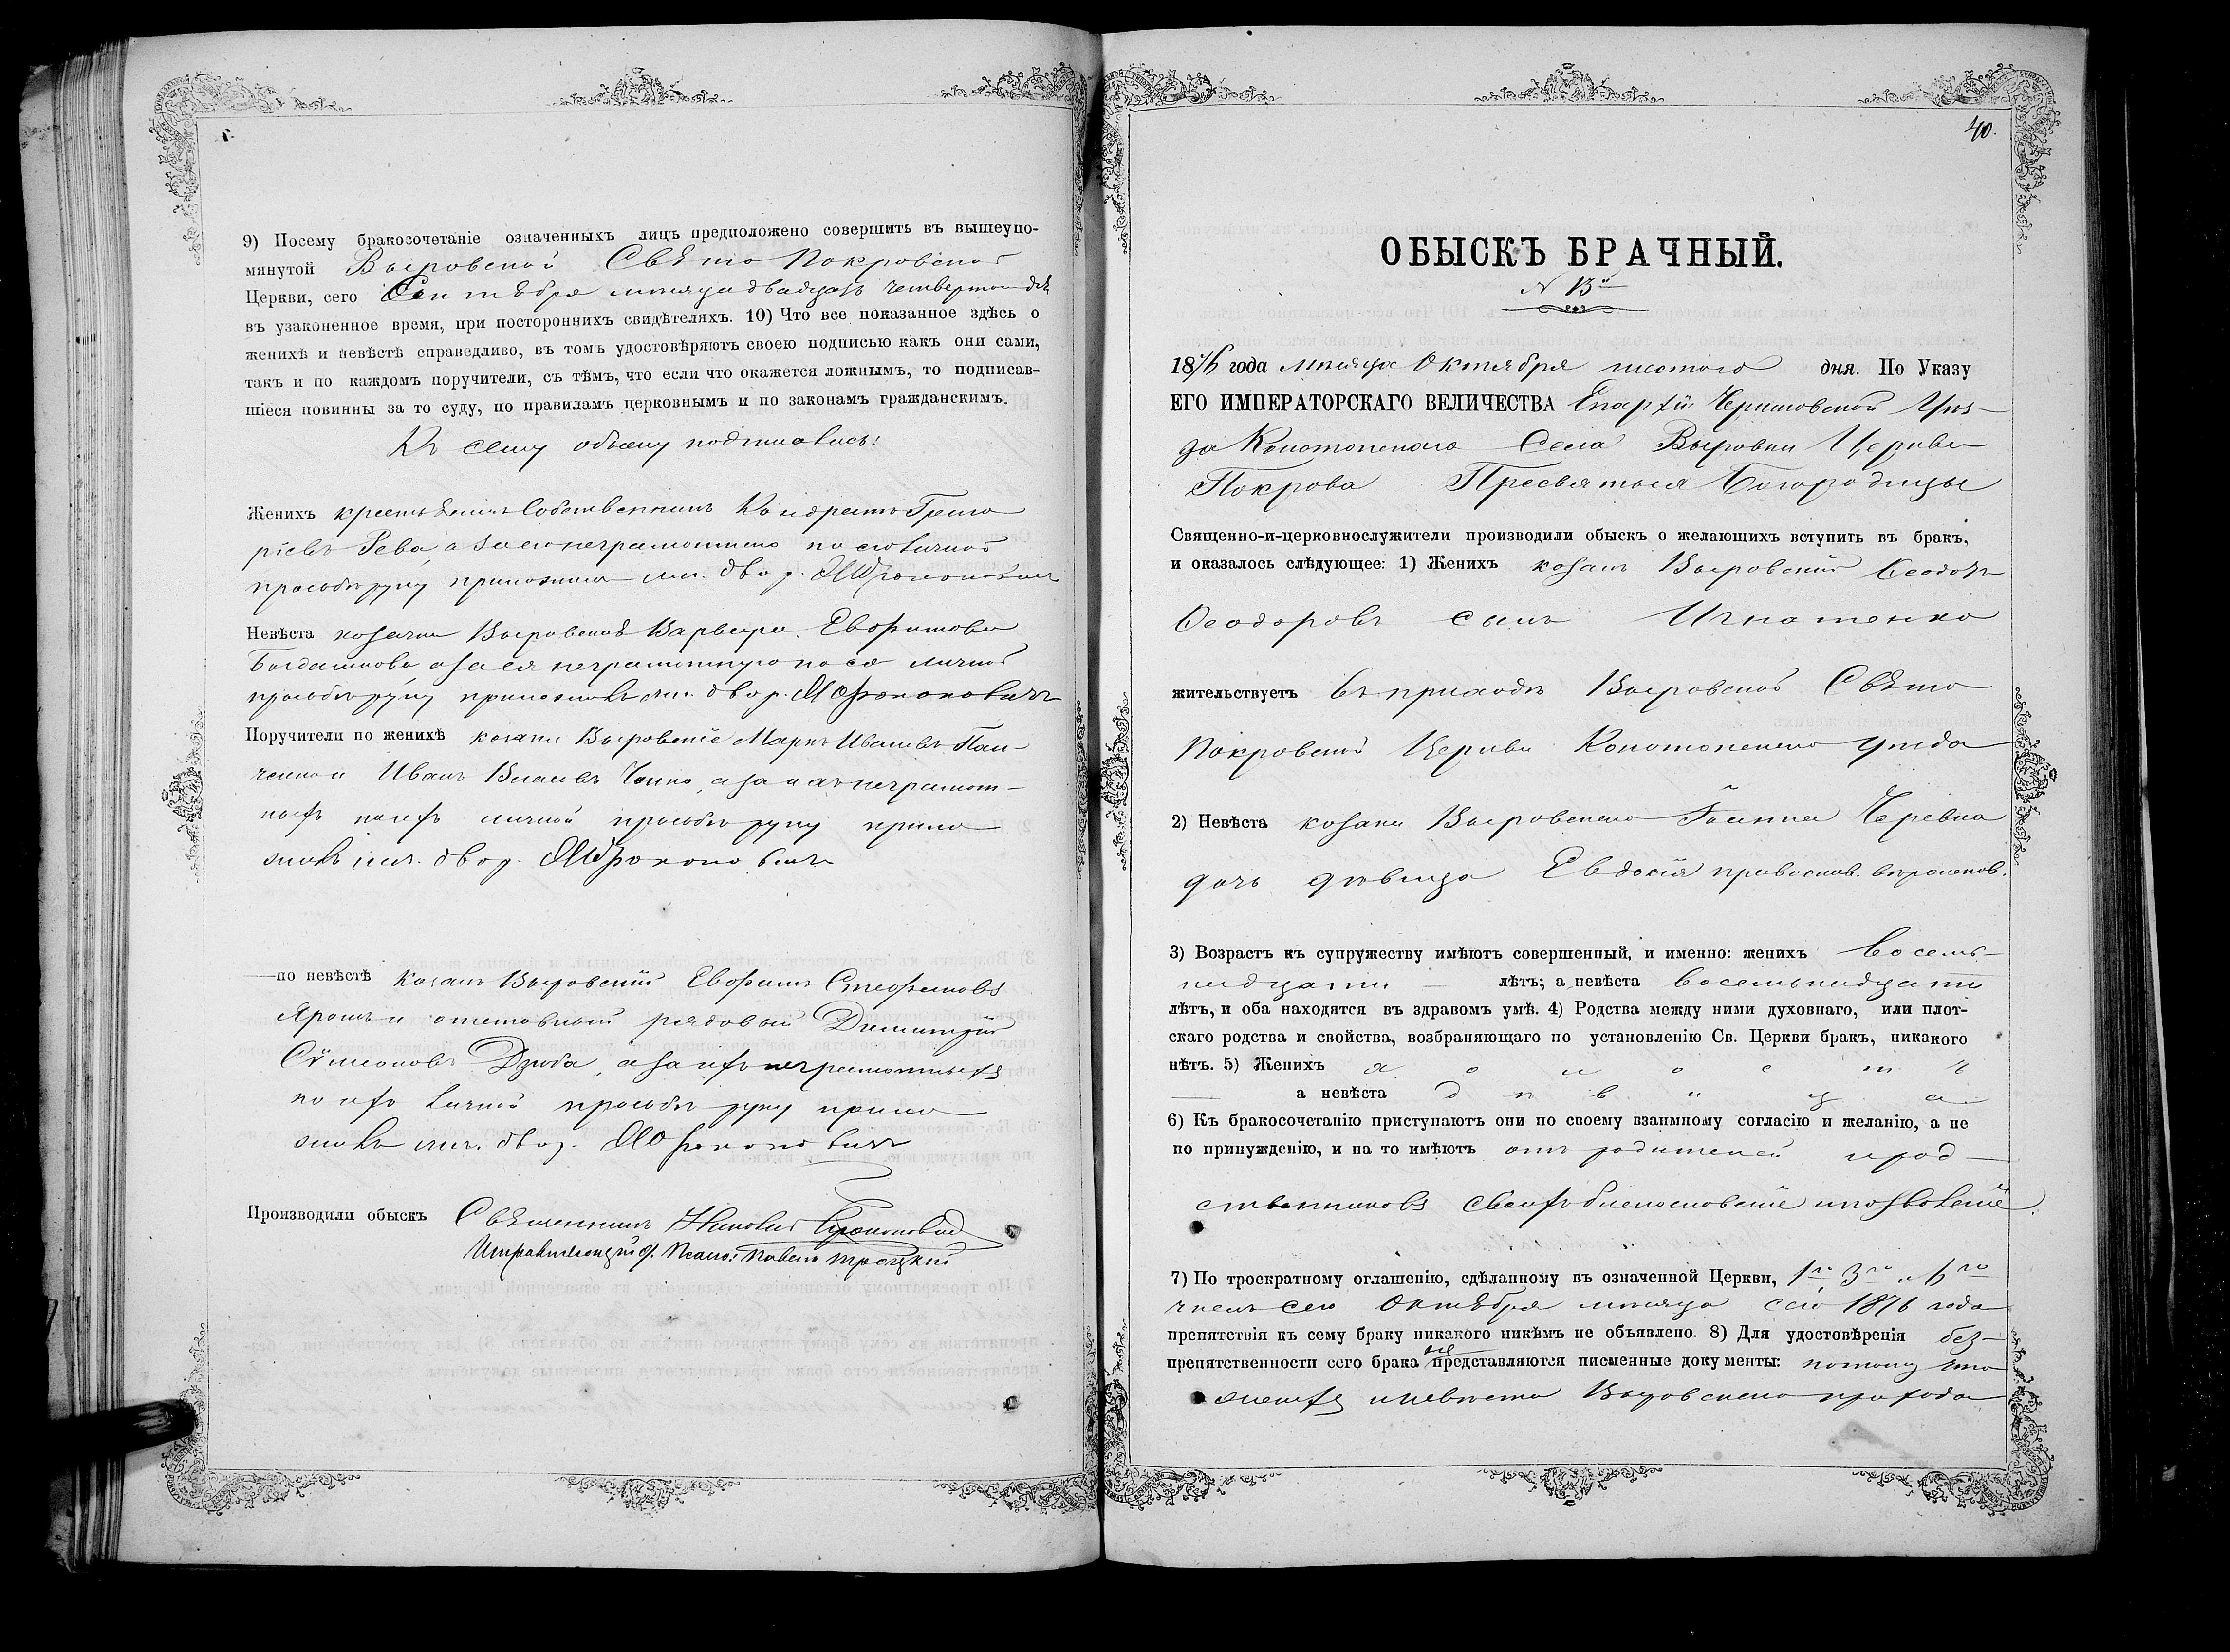 9) Посему бракосочетаніе означенныхъ лицъ предположено совершить въ вышеупо-
мянутой Выровской Свѣто Покровской
Церкви, сего Сентѣбря мѣсяца двадцать четвертого дня
въ узаконенное время, при постороннихъ свидѣтеляхъ. 10) Что все показанное здѣсь о
женихѣ и невѣстѣ справедливо, въ томъ удостовѣряютъ своею подписью какъ они сами,
такъ и по каждомъ поручители, съ тѣмъ, что если что окажется ложнымъ, то подписав-
шіеся повинны за то суду, по правиламъ церковнымъ и по законамъ гражданскимъ.
Къ сему обыску подписались:
Женихъ крестьянинъ Собственникъ Кондратъ Григо
ріевъ Рева, а за его неграмотного по его личной
просьбѣ руку приложилъ двор.
Невѣста козачка Выровская Варвара Евфимова
Богданова а за ея неграмотную по ея личной
просьбѣ руку приложилъ двор.
Поручители по женихѣ козаки Выровскіе Маркъ Ивановъ Пан-
ченко и Иванъ Власовъ а за ихъ неграмот-
ныхъ по ихъ личной просьбѣ руку прило
жилъ двор.
—по невѣстѣ Козакъ Выровскій Евфимъ Стефановъ
и отставный рядовый Димитрій
Сѵмеоновъ Дзюба, а за ихъ неграмотныхъ
по ихъ личной просьбѣ руку прило
жилъ двор.
Производили обыскъ Свѣщенникъ
Исправляющій д. Псало: Павелъ Троцкій
40.
ОБЫСКЪ БРАЧНЫЙ.
№ 13й
1876 года мѣсяца Октября шестого дня. По Указу
ЕГО ИМПЕРАТОРСКАГО ВЕЛИЧЕСТВА Епархіи Черниговской Уѣз-
да Конотопского Села Выровки Церкви
Покрова Пресвятыя Богородицы
Священно-и-церковнослужители производили обыскъ о желающихъ вступить въ бракъ,
и оказалось слѣдующее: 1) Женихъ козакъ Выровскій
Ѳеодоровъ сынъ Игнатенко
жительствуетъ въ приходѣ Выровской Свѣто
Покровской Церкви Конотопского уѣзда
2) Невѣста козака Выровского Іоанна Черевка
дочь дѣвица Евдокія православ. вѣроисповѣд.
3) Возрастъ къ супружеству имѣютъ совершенный, и именно: женихъ восемь-
надцати — лѣтъ; а невѣста восемьнадцати
лѣтъ, и оба находятся въ здравомъ умѣ. 4) Родства между ними духовнаго, или плот-
скаго родства и свойства, возбраняющаго по установленію Св. Церкви бракъ, никакого
нѣтъ. 5) Женихъ х о л о с т ъ
— а невѣста д ѣ в и ц а
6) Къ бракосочетанію приступаютъ они по своему взаимному согласію и желанію, а не
по принужденію, и на то имѣютъ отъ родителей и род-
ственниковъ своихъ благословеніе и позволеніе.
7) По троекратному оглашенію, сдѣланному въ означенной Церкви, 1го, 3го и 6го
числъ сего Октѣбря мѣсяца сего 1876 года
препятствія къ сему браку никакого никѣмъ не объявлено. 8) Для удостовѣренія без-
препятственности сего брака не представляются письменные документы: потому что
женихъ и невѣста Выровского прихода